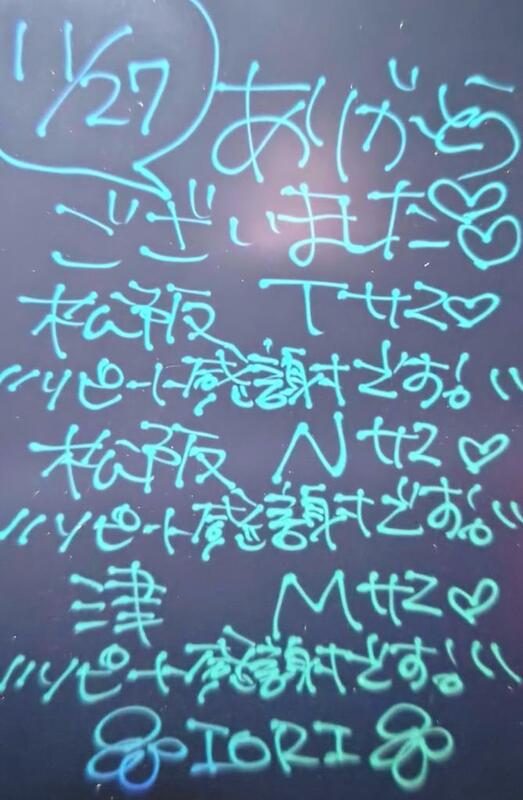 11/27
ありがとう
ございました♡♡
松阪 Tサマ♡
〃リピート感謝です!〃
松阪 Nサマ♡
〃リピート感謝です!〃
津 Mサマ♡
〃リピート感謝です!〃
IORI